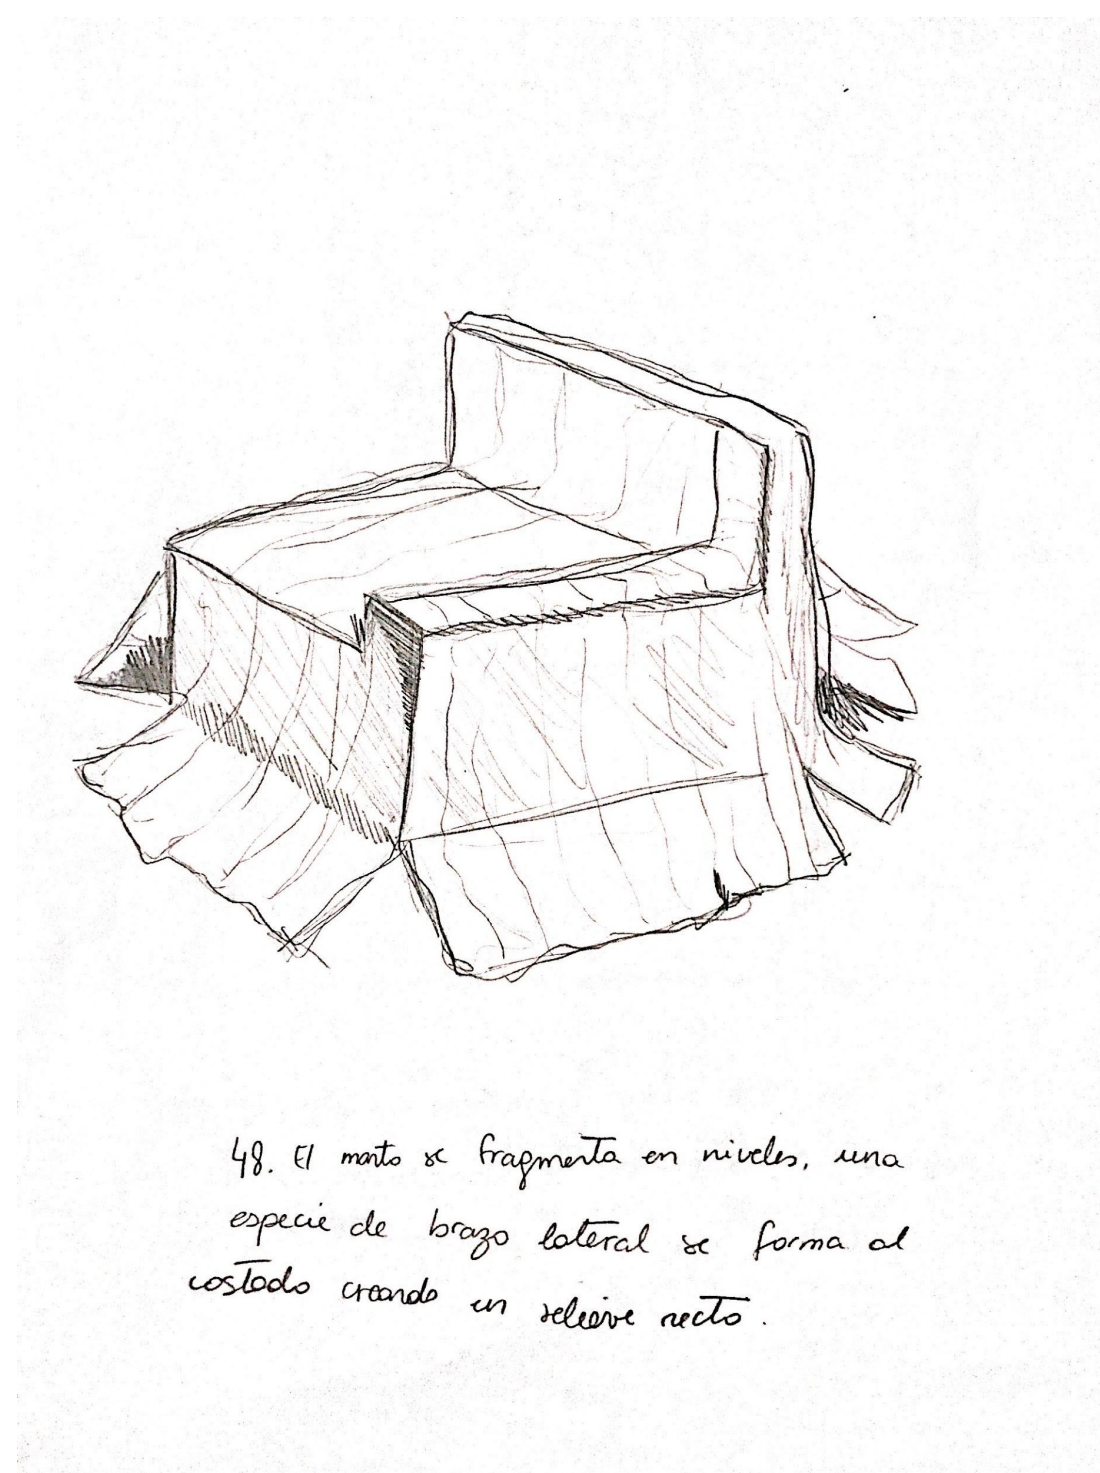 48. El manto se fragmenta en niveles, una
especie de brazo lateral se forma al
costado creando un relieve recto.